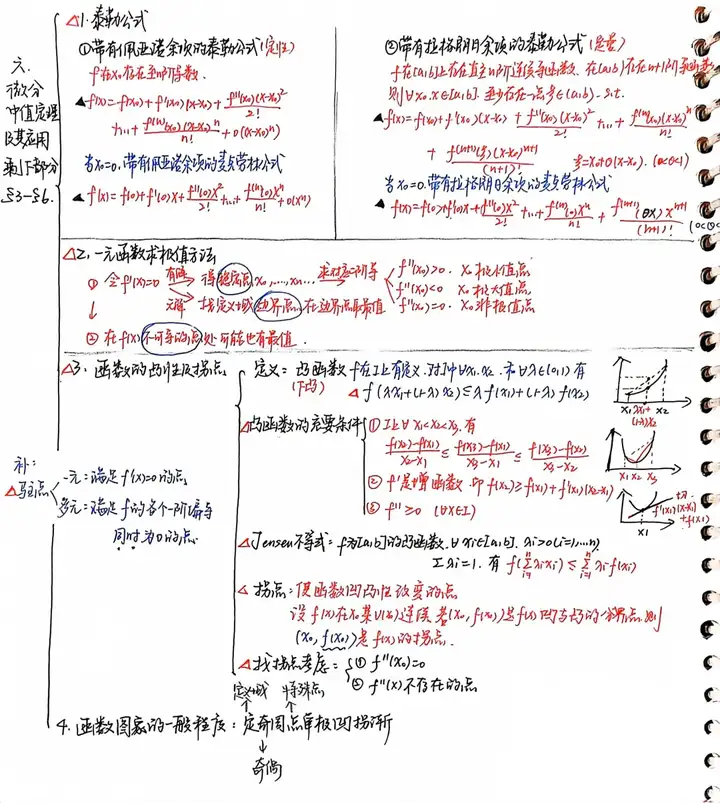 六.
微分
中值定理
及其应用
剩下部分
§3-§6.
△1. 泰勒公式
①带有佩亚诺余项的泰勒公式(定性)
f在x₀存在至n阶导数.
▲f(x)=f(x₀)+f'(x₀)(x-x₀)+f''(x₀)(x-x₀)²/2!
+...+f⁽ⁿ⁾(x₀)(x-x₀)ⁿ/n!+o((x-x₀)ⁿ)
当x₀=0.带有佩亚诺余项的麦克劳林公式
▲f(x)=f(0)+f'(0)x+f''(0)x²/2!+...+f⁽ⁿ⁾(0)xⁿ/n!+o(xⁿ)
②带有拉格朗日余项的泰勒公式(定量)
f在[a,b]上存在直至n阶连续导函数.在(a,b)存在n+1阶导函数
则∀x₀.x∈[a,b].至少存在一点ξ∈(a,b).s.t.
▲f(x)=f(x₀)+f'(x₀)(x-x₀)+f''(x₀)(x-x₀)²/2!+...+f⁽ⁿ⁾(x₀)(x-x₀)ⁿ/n!
+f⁽ⁿ⁺¹⁾(ξ)(x-x₀)ⁿ⁺¹/(n+1)! ξ=x₀+θ(x-x₀).(0<θ<1)
当x₀=0.带有拉格朗日余项的麦克劳林公式
▲f(x)=f(0)+f'(0)x+f''(0)x²/2!+...+f⁽ⁿ⁾(0)xⁿ/n!+f⁽ⁿ⁺¹⁾(θx)xⁿ⁺¹/(n+1)! (0<θ<
△2. 一元函数求极值方法
① 令f'(x)=0 有解 得稳定点x₀,...,xₙ... 求对应二阶导
f''(x₀)>0. x₀极小值点
f''(x₀)<0 x₀极大值点
f''(x₀)=0. x₀非极值点
无解 找定义域边界点.在边界点取最值
② 在f(x)不可导的点处可能也有最值.
△3. 函数的凸性及拐点
定义: 凸函数 f在I上有定义.对I中∀x₁.x₂.和∀λ∈(0,1)有
(下凸) △ f(λx₁+(1-λ)x₂)≤λf(x₁)+(1-λ)f(x₂)
x₁ λx₁+ x₂
(1-λ)x₂
△凸函数的充要条件
①I上∀x₁<x₂<x₃.有
f(x₂)-f(x₁)/x₂-x₁ ≤ f(x₃)-f(x₁)/x₃-x₁ ≤ f(x₃)-f(x₂)/x₃-x₂
x₁ x₂ x₃
② f'是增函数 即f(x₂)≥f(x₁)+f'(x₁)(x₂-x₁)
③ f''≥0 (∀x∈I)
f'(x₁)(x-x₁)
+f(x₁)
x₁
补:
△驻点
一元:满足f'(x)=0的点.
多元:满足f的各个一阶偏导
同时为0的点.
△Jensen不等式:f为[a,b]的凸函数.∀xᵢ∈[a,b].λᵢ>0(i=1,...n)
Σλᵢ=1.有 f(Σⁿᵢ₌₁λᵢxᵢ)≤Σⁿᵢ₌₁λᵢf(xᵢ)
△ 拐点:使函数凹凸性改变的点
设f(x)在x₀某U(x₀)连续 若(x₀,f(x₀))是f(x)凹与凸的分界点.则
(x₀,f(x₀))是f(x)的拐点.
△找拐点考虑:
① f''(x₀)=0
② f''(x)不存在的点
定义域 特殊点
4. 函数图象的一般程序:定奇周点单极凹拐渐
奇偶